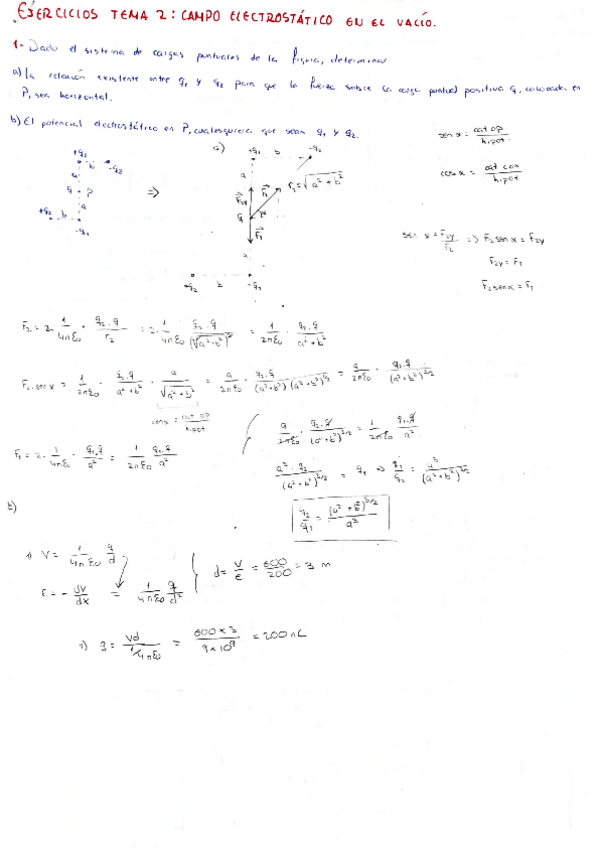 EJERCICIOS TEMA 2: CAMPO ELECTROSTÁTICO EN EL VACÍO.
1- Dado el sistema de cargas puntuales de la figura, determinar
a) La relación existente entre q₁ y q₂ para que la fuerza sobre la carga puntual positiva q, colocada en
P, sea horizontal.
b) El potencial electrostático en P, cualesquiera que sean q₁ y q₂.
sen α = cat op / hipot
cos α = cat con / hipot
+q₁ b -q₂
a
q P
a
+q₂ b -q₁
=>
a)
b -q₂
a
r₂ = √(a² + b²)
F₂y
F₂
q
F₁
a
+q₂ b -q₁
sen α = F₂y / F₂ => F₂ sen α = F₂y
F₂y = F₁
F₂ sen α = F₁
F₂ = 2 · 1/4πε₀ · q₂·q / r₂ = 2 · 1/4πε₀ · q₂·q / (√(a²+b²))² = 1/2πε₀ · q₂·q / a²+b²
F₂ · sen α = 1/2πε₀ · q₂·q / a²+b² · a / √(a²+b²) = a/2πε₀ · q₂·q / (a²+b²)(a²+b²)^1/2 = a/2πε₀ · q₂·q / (a²+b²)^3/2
sen α = cat op / hipot
F₁ = 2 · 1/4πε₀ · q₁·q / a² = 1/2πε₀ · q₁·q / a²
a/2πε₀ · q₂·q / (a²+b²)^3/2 = 1/2πε₀ · q₁·q / a²
a³·q₂ / (a²+b²)^3/2 = q₁ => q₁/q₂ = a³ / (a²+b²)^3/2
q₂/q₁ = (a²+b²)^3/2 / a³
b)
1) V = 1/4πε₀ q/d
E = - dV/dx = 1/4πε₀ q/d²
d = V/E = 600/200 = 3 m
1) q = Vd / 1/4πε₀ = 600 x 3 / 9 x 10⁹ = 200 nC